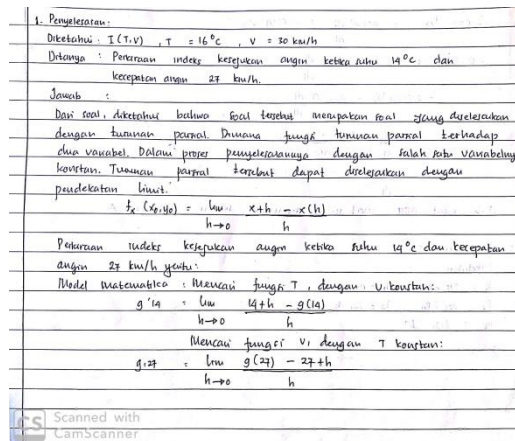 1. Penyelesaian:
Diketahui : I (T,V) , T = 16°C , V = 30 km/h
Ditanya : Perkiraan indeks kesejukan angin ketika suhu 14°C dan
kecepatan angin 27 km/h.
Jawab :
Dari soal, diketahui bahwa soal tersebut merupakan soal yang diselesaikan
dengan turunan parsial. Dimana fungsi turunan parsial terhadap
dua variabel. Dalam proses penyelesaiannya dengan salah satu variabelnya
konstan. Turunan parsial tersebut dapat diselesaikan dengan
pendekatan limit.
fx (x0,y0) = lim x+h - x(h)
h→0 h
Perkiraan indeks kesejukan angin ketika suhu 14°C dan kecepatan
angin 27 km/h yaitu:
Model matematika : Mencari fungsi T , dengan V konstan:
g'14 = lim 14+h - g(14)
h→0 h
Mencari fungsi V, dengan T konstan:
g.27 = lim g(27) - 27+h
h→0 h
CS Scanned with
CamScanner